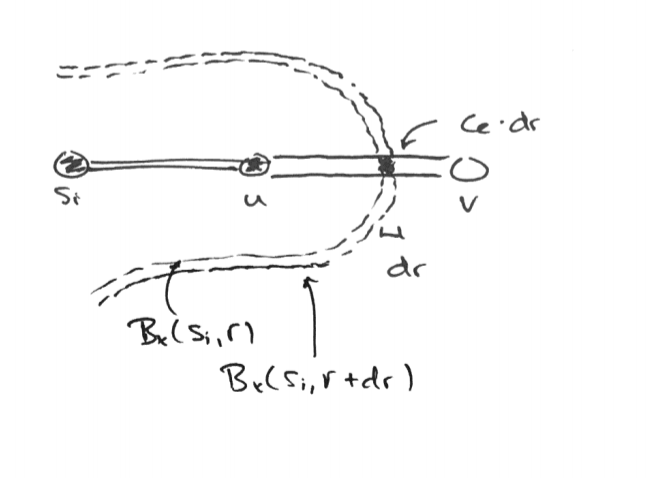 Ce·dr
Si
u
v
dr
Bx(Si,r)
Bx(Si,r+dr)